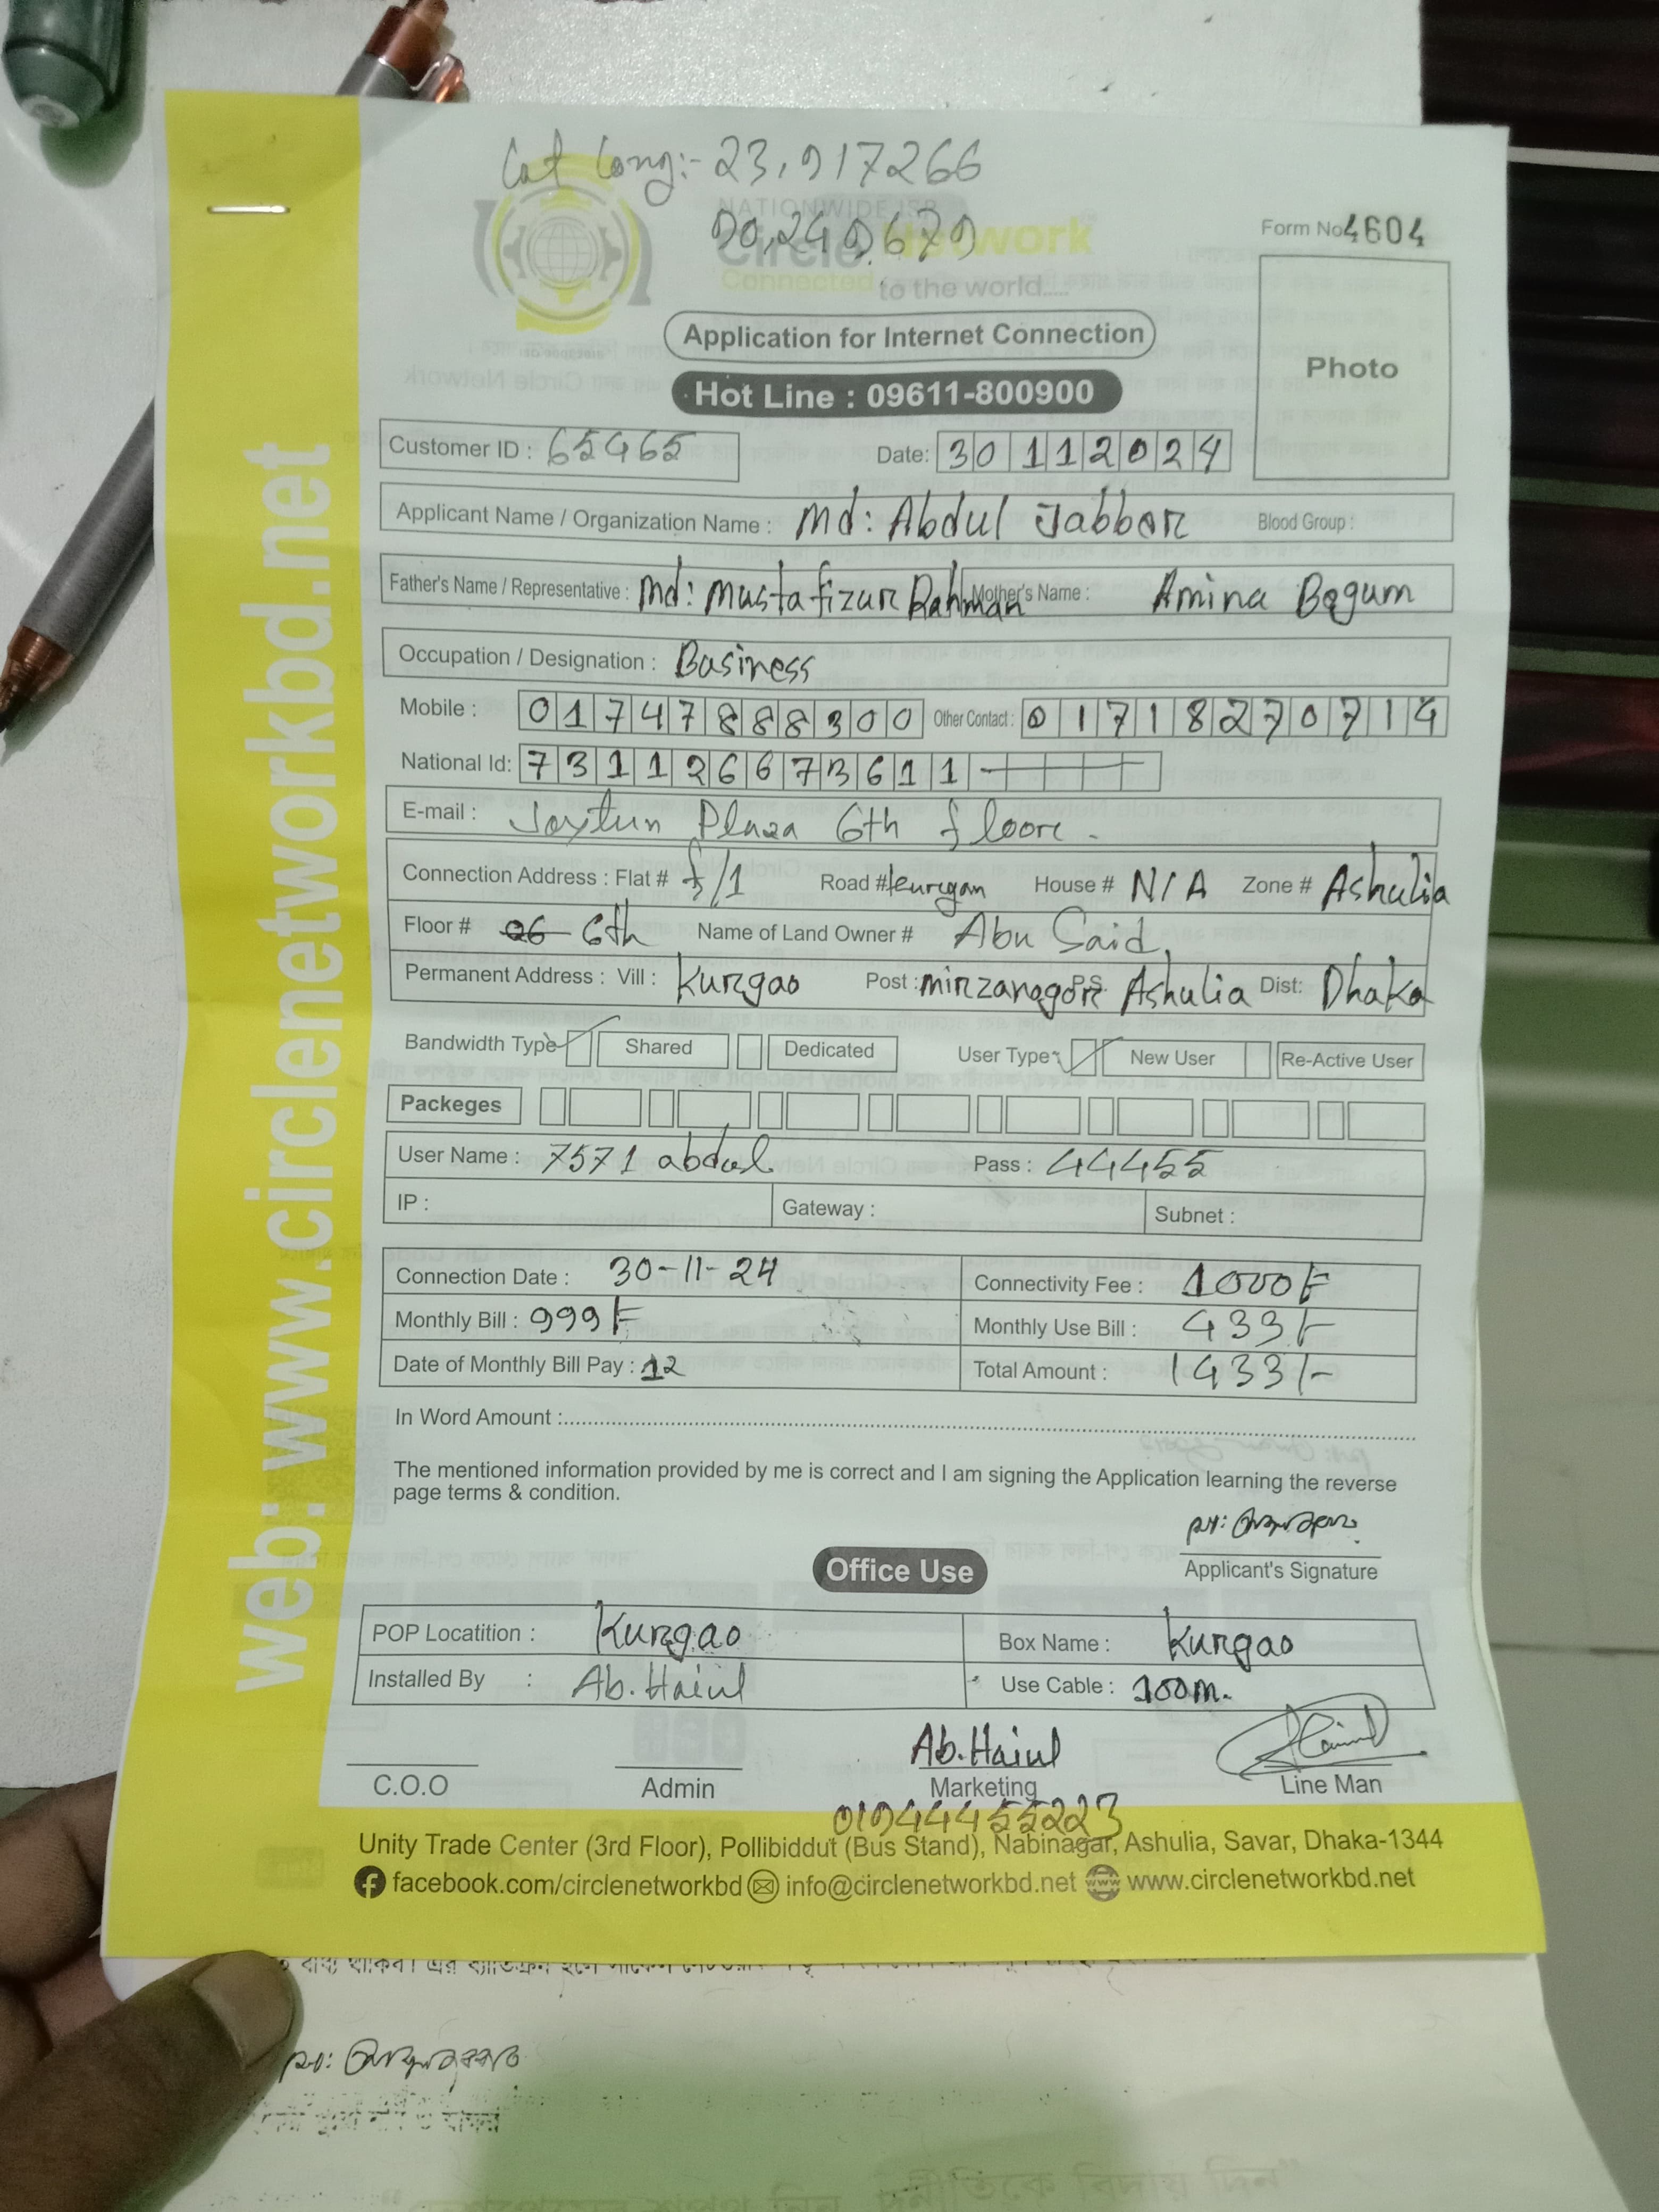 Lat Long:- 23.917266
90.249679
NATIONWIDE ISP
Circle Network
Connected to the world.....
Form No 4604
Photo
Application for Internet Connection
Hot Line : 09611-800900
Customer ID : 65465 Date: 30112024
Applicant Name / Organization Name : Md: Abdul Jabbar Blood Group :
Father's Name / Representative : Md: Mustafizur Rahman Mother's Name : Amina Begum
Occupation / Designation : Business
Mobile : 01747888300 Other Contact : 01718270714
National Id: 731126673611
E-mail : Joytun Plaza 6th floore.
Connection Address : Flat # f/1 Road # kurgan House # N/A Zone # Ashulia
Floor # 06 6th Name of Land Owner # Abu Said
Permanent Address : Vill : Kurgao Post : mirzanagor P.S. Ashulia Dist: Dhaka
Bandwidth Type Shared Dedicated User Type New User Re-Active User
Packeges
User Name : 7571 abdul Pass : 44455
IP : Gateway : Subnet :
Connection Date : 30-11-24 Connectivity Fee : 1000/-
Monthly Bill : 999/- Monthly Use Bill : 433/-
Date of Monthly Bill Pay : 12 Total Amount : 1433/-
In Word Amount :
The mentioned information provided by me is correct and I am signing the Application learning the reverse
page terms & condition.
Applicant's Signature
Office Use
POP Locatition : Kurgao Box Name : Kurgao
Installed By : Ab. Haiul Use Cable : 100m.
Ab. Haiul
C.O.O Admin Marketing Line Man
01944455223
Unity Trade Center (3rd Floor), Pollibiddut (Bus Stand), Nabinagar, Ashulia, Savar, Dhaka-1344
facebook.com/circlenetworkbd info@circlenetworkbd.net www.circlenetworkbd.net
web: www.circlenetworkbd.net